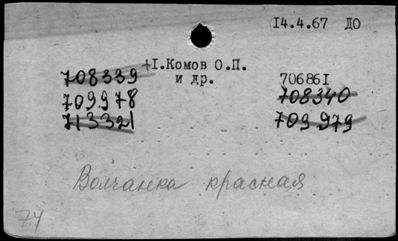 14.4.67 ДО
+1.Комов О.П.
и др.
708339
709978
713321
706861
708340
709979
Волчанка красная
74